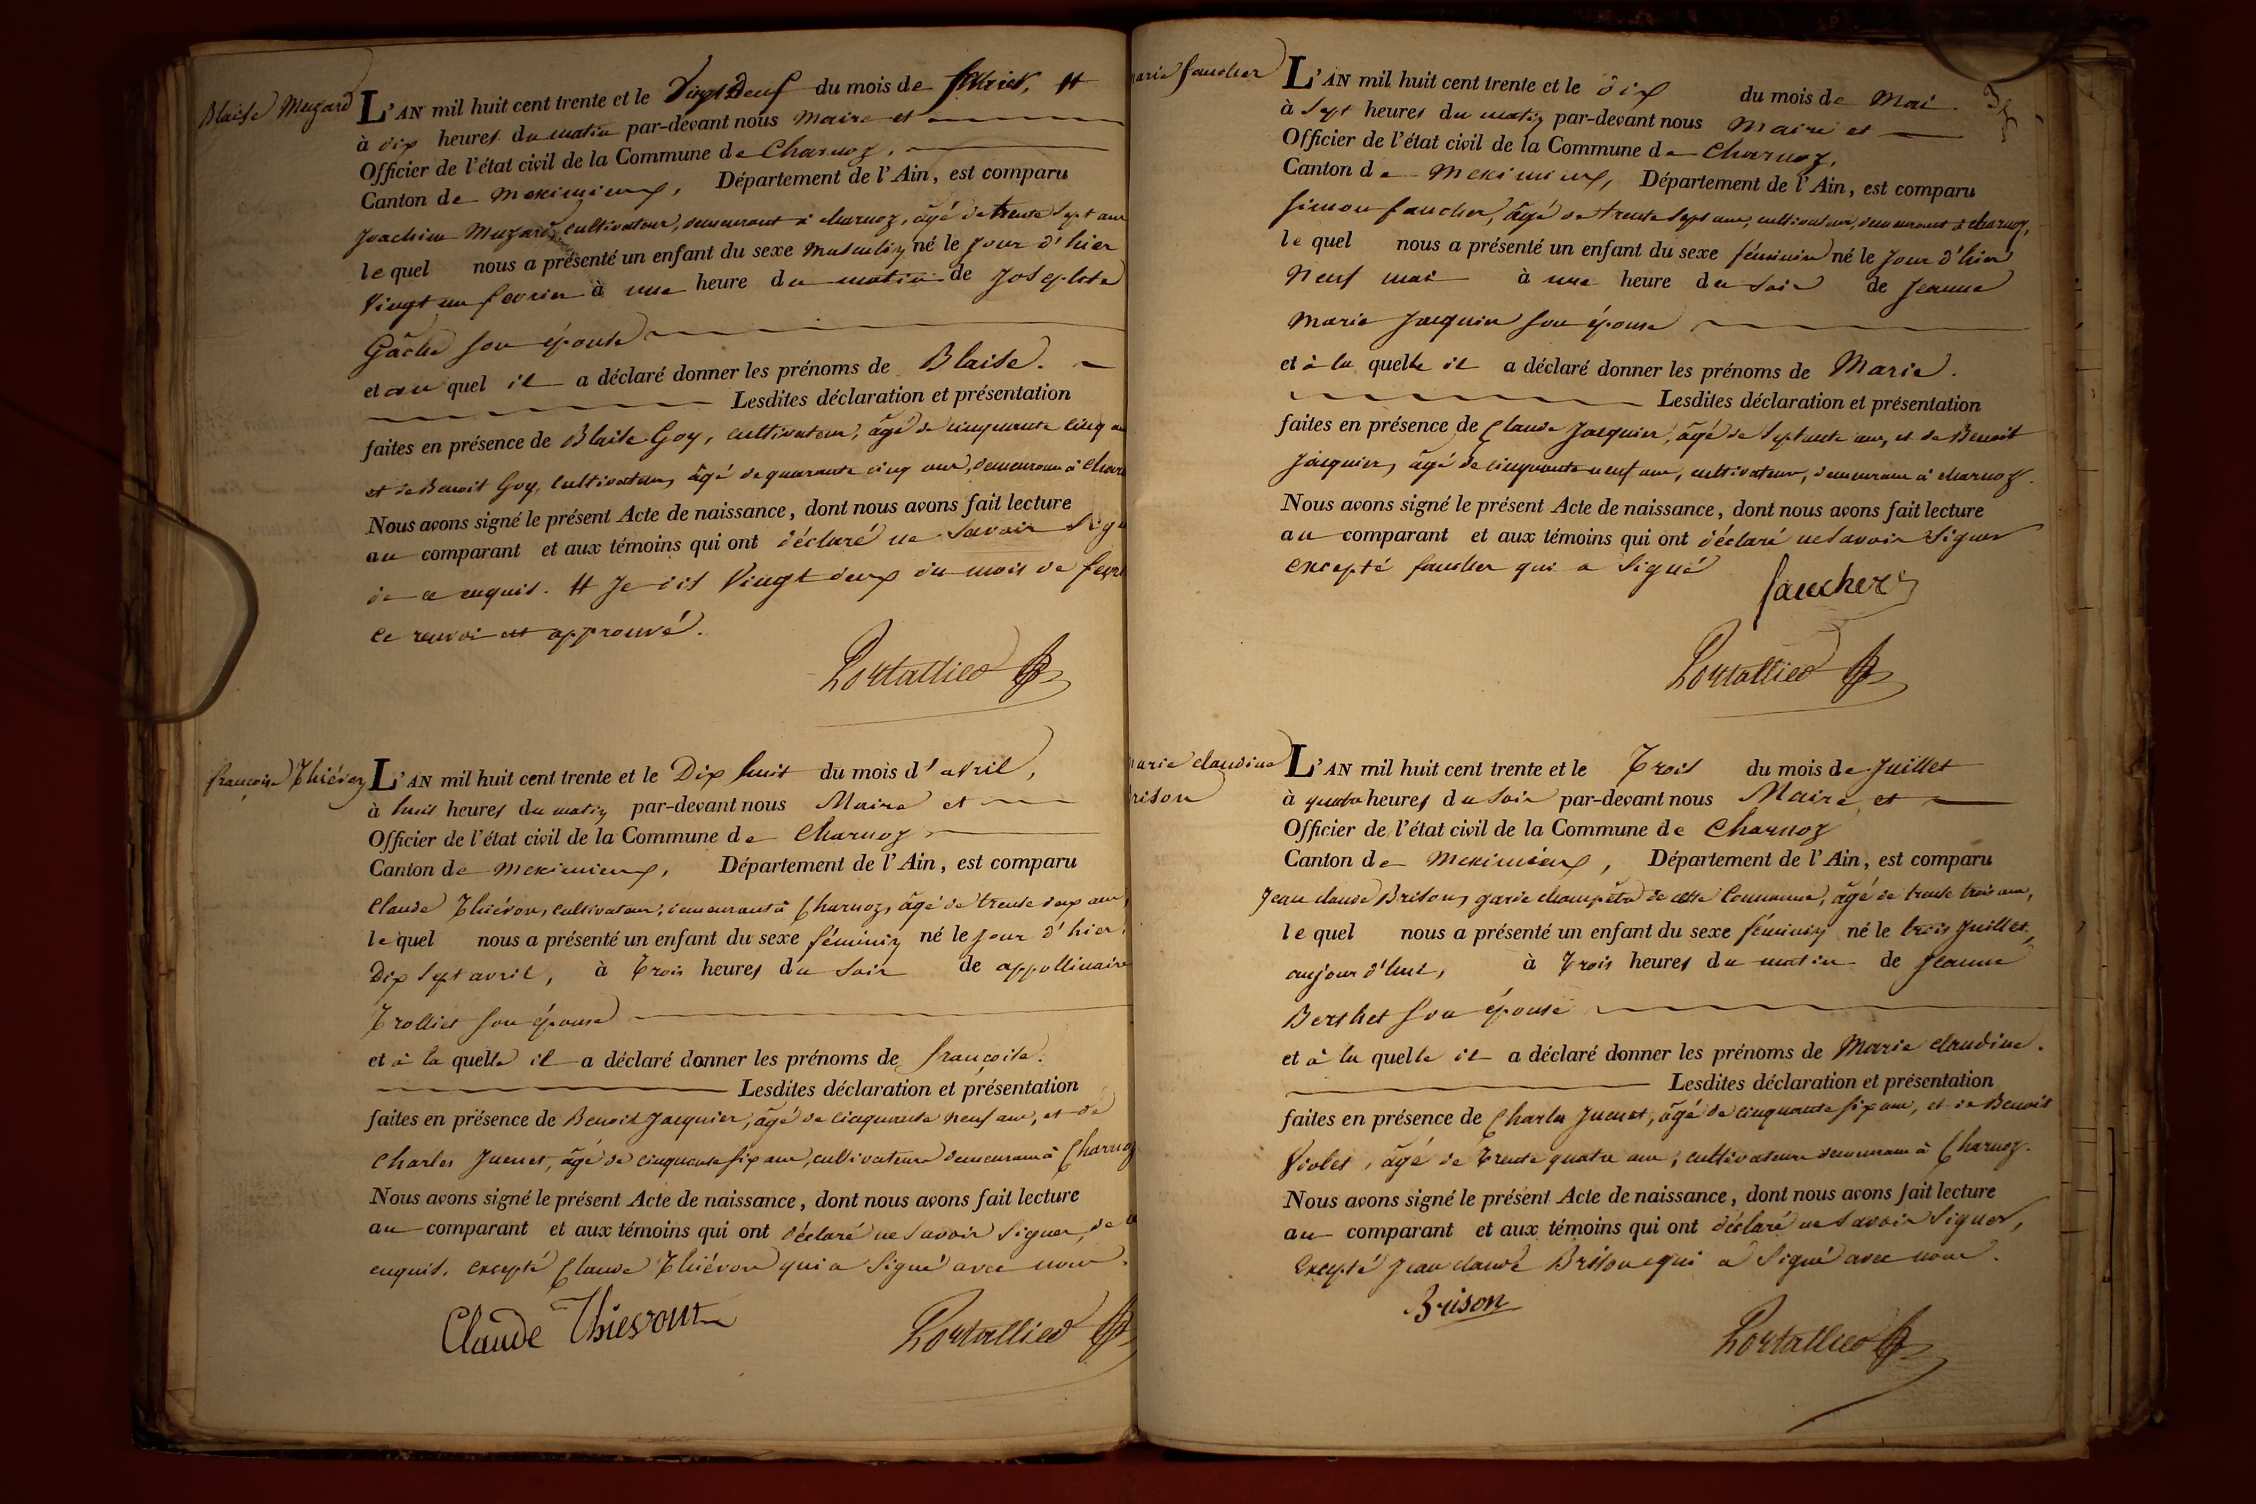 Blaise Muzard
L'AN mil huit cent trente et le Vingt Deux du mois de février, #
à dix heures du matin par-devant nous Maire et
Officier de l'état civil de la Commune de Charnoz,
Canton de Meximieux, Département de l'Ain, est comparu
Joachim Muzard, cultivateur, demeurant à charnoz, âgé de trente sept ans
lequel nous a présenté un enfant du sexe Masculin né le jour d'hier
Vingt un fevrier à une heure du matin de Josephte
Gâche son épouse
et au quel il a déclaré donner les prénoms de Blaise.
Lesdites déclaration et présentation
faites en présence de Blaise Goy, cultivateur, âgé de cinquante cinq
et de Benoit Goy, cultivateur, âgé de quarante cinq ans, demeurant à Char
Nous avons signé le présent Acte de naissance, dont nous avons fait lecture
au comparant et aux témoins qui ont déclaré ne savoir sig
de ce enquis. # Je dis Vingt deux du mois de fevr
ce renvoi est approuvé.
Portallier
françoise Thiévon
L'AN mil huit cent trente et le Dix huit du mois d'avril,
à huit heures du matin par-devant nous Maire et
Officier de l'état civil de la Commune de Charnoz
Canton de Meximieux, Département de l'Ain, est comparu
Claude Thiévon, cultivateur, demeurant à Charnoz, âgé de trente deux ans,
lequel nous a présenté un enfant du sexe féminin né le jour d'hier,
Dix sept avril, à Trois heures du soir de appollinaire
Trolliet son épouse
et à la quelle il a déclaré donner les prénoms de françoise.
Lesdites déclaration et présentation
faites en présence de Benoit Jacquier, âgé de cinquante neuf ans, et de
Charles Juenet, âgé de cinquante six ans, cultivateurs demeurant à Charnoz
Nous avons signé le présent Acte de naissance, dont nous avons fait lecture
au comparant et aux témoins qui ont déclaré ne savoir signer, de
enquis. excepté Claude Thiévon qui a signé avec nous.
Claude Thievon
Portallier
arie faucher
L'AN mil huit cent trente et le dix du mois de Mai.
à sept heures du matin par-devant nous Maire et
Officier de l'état civil de la Commune de Charnoz,
Canton de Meximieux, Département de l'Ain, est comparu
Simon faucher, âgé de trente sept ans, cultivateur, demeurant à charnoz,
lequel nous a présenté un enfant du sexe féminin né le jour d'hier
Neuf mai à une heure du soir de Jeanne
Marie Jacquier son épouse
et à la quelle il a déclaré donner les prénoms de Marie.
Lesdites déclaration et présentation
faites en présence de Claude Jacquier, âgé de septante ans, et de Benoit
Jacquier, âgé de cinquante neuf ans, cultivateurs, demeurant à charnoz.
Nous avons signé le présent Acte de naissance, dont nous avons fait lecture
au comparant et aux témoins qui ont déclaré ne savoir signer
excepté faucher qui a signé
faucher
Portallier
arie claudine
rison
L'AN mil huit cent trente et le Trois du mois de Juillet
à quatre heures du soir par-devant nous Maire et
Officier de l'état civil de la Commune de Charnoz
Canton de Meximieux, Département de l'Ain, est comparu
Jean claude Brison, garde champêtre de cette Commune, âgé de trente trois ans,
lequel nous a présenté un enfant du sexe féminin né le trois juillet,
aujourd'hui, à Trois heures du matin de Jeanne
Berthet son épouse
et à la quelle il a déclaré donner les prénoms de Marie claudine.
Lesdites déclaration et présentation
faites en présence de Charles Juenet, âgé de cinquante six ans, et de Benoit
Violet, âgé de Trente quatre ans, cultivateurs demeurant à Charnoz.
Nous avons signé le présent Acte de naissance, dont nous avons fait lecture
au comparant et aux témoins qui ont déclaré ne savoir signer,
excepté Jean claude Brison qui a signé avec nous.
Brison
Portallier